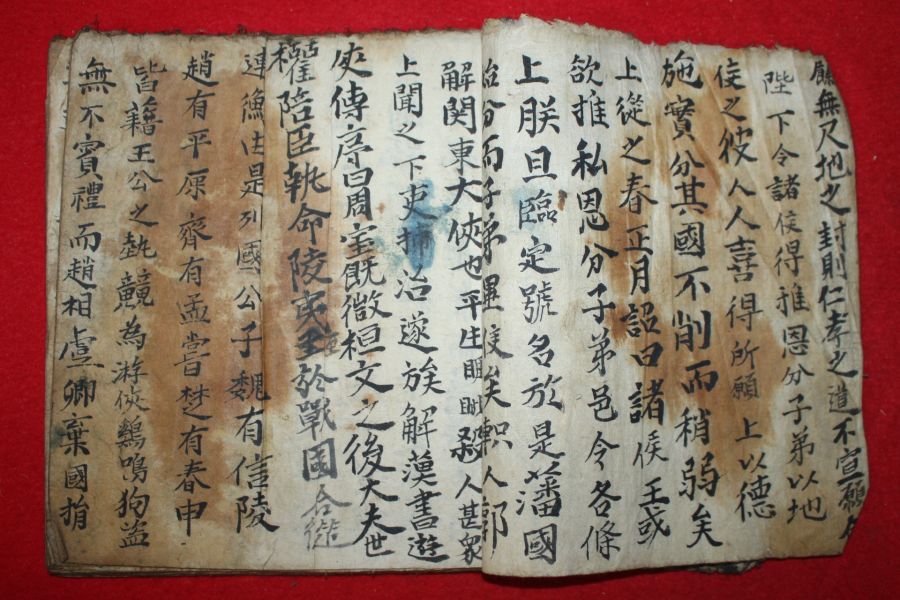 無尺地之封則仁孝之道不宣願
陛下令諸侯得推恩分子弟以地
侯之彼人人喜得所願上以德
施實分其國不削而稍弱矣
上從之春正月詔曰諸侯王或
欲推私恩分子弟邑令各條
上朕且臨定號名於是藩國
始分而子弟畢侯矣軹人郭
解関東大俠也平生睚眦殺人甚衆
上聞之下吏捕治遂族解漢書遊
俠傳序曰周室既微桓文之後大夫世
權陪臣執命陵夷至於戰国合從
連衡由是列國公子魏有信陵
趙有平原齊有孟嘗楚有春申
皆藉王公之埶競為游俠鷄鳴狗盜
無不賓禮而趙相虞卿棄國捐